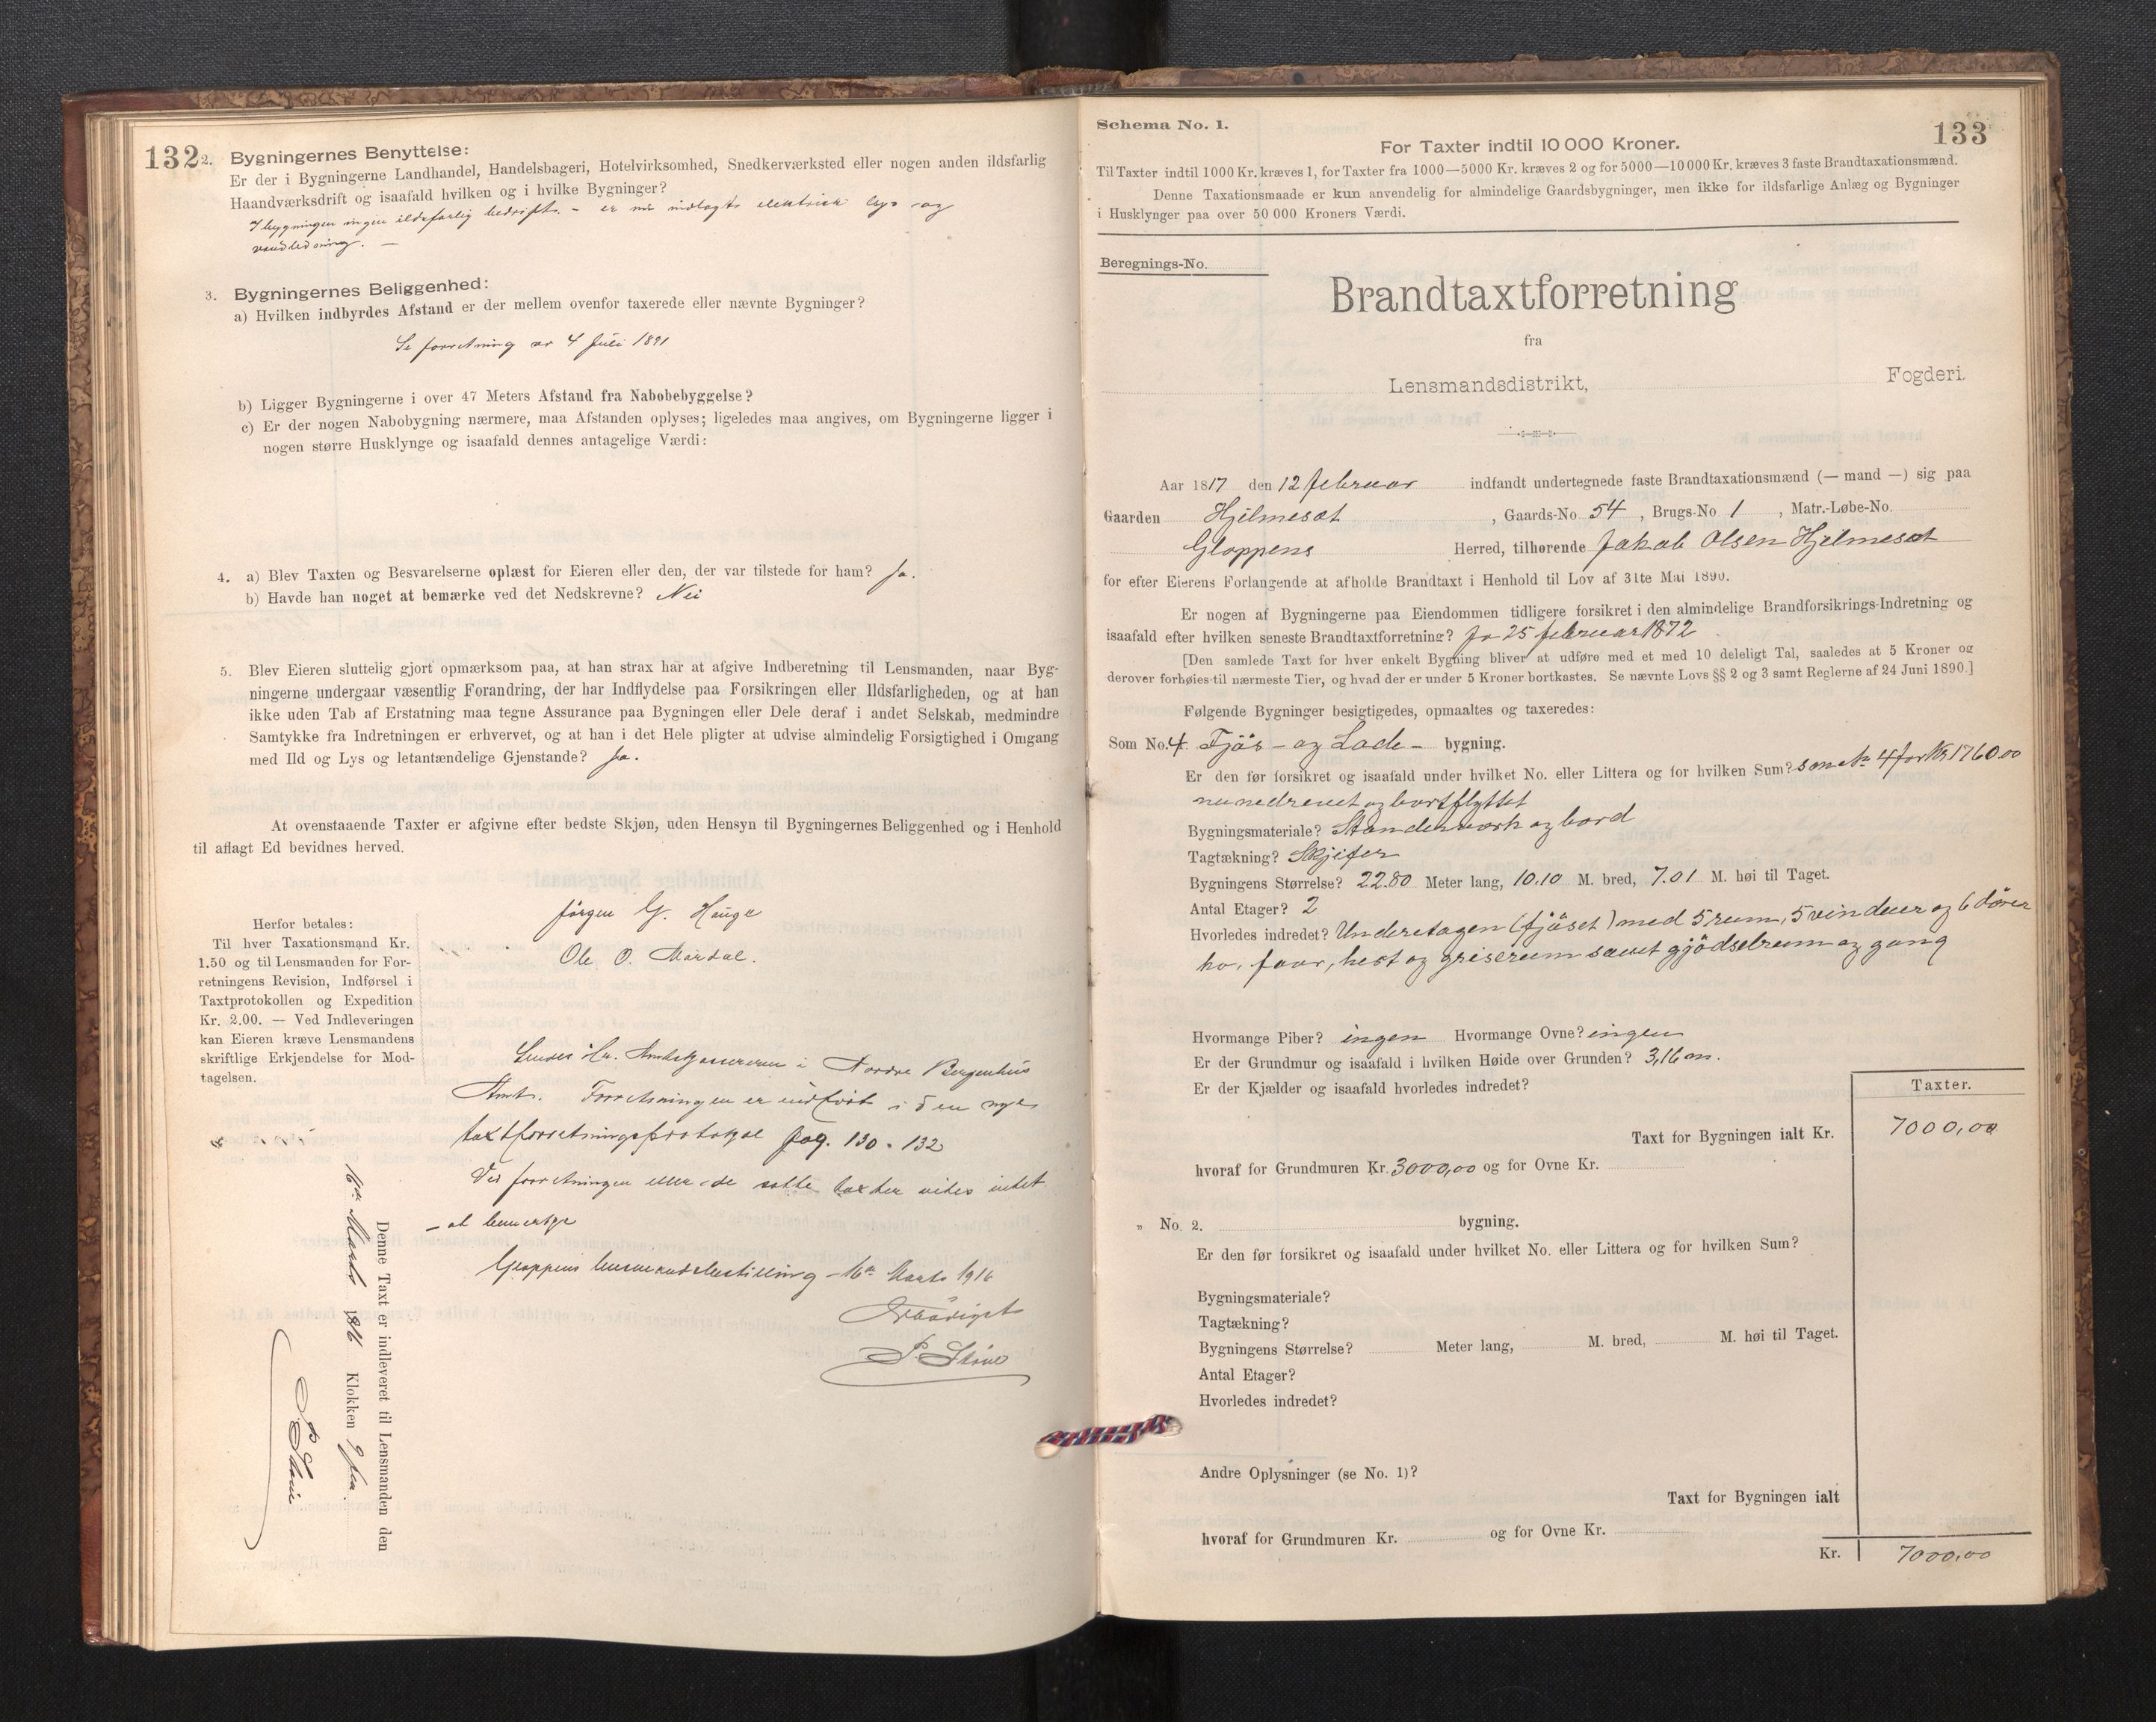 132
2. Bygningernes Benyttelse:
Er der i Bygningerne Landhandel, Handelsbageri, Hotelvirksomhed, Snedkerværksted eller nogen anden ildsfarlig
Haandværksdrift og isaafald hvilken og i hvilke Bygninger?
I bygningen ingen ildsfarlig bedrift. - er nu indlagt elektrisk lys og
vandledning. -
3. Bygningernes Beliggenhed:
a) Hvilken indbyrdes Afstand er der mellem ovenfor taxerede eller nævnte Bygninger?
Se forretning av 4 Juli 1891
b) Ligger Bygningerne i over 47 Meters Afstand fra Nabobebyggelse?
c) Er der nogen Nabobygning nærmere, maa Afstanden oplyses; ligeledes maa angives, om Bygningerne ligger i
nogen større Husklynge og isaafald dennes antagelige Værdi:
4. a) Blev Taxten og Besvarelserne oplæst for Eieren eller den, der var tilstede for ham? Ja.
b) Havde han noget at bemærke ved det Nedskrevne? Nei
5. Blev Eieren sluttelig gjort opmærksom paa, at han strax har at afgive Indberetning til Lensmanden, naar Byg-
ningerne undergaar væsentlig Forandring, der har Indflydelse paa Forsikringen eller Ildsfarligheden, og at han
ikke uden Tab af Erstatning maa tegne Assurance paa Bygningen eller Dele deraf i andet Selskab, medmindre
Samtykke fra Indretningen er erhvervet, og at han i det Hele pligter at udvise almindelig Forsigtighed i Omgang
med Ild og Lys og letantændelige Gjenstande? Ja.
At ovenstaaende Taxter er afgivne efter bedste Skjøn, uden Hensyn til Bygningernes Beliggenhed og i Henhold
til aflagt Ed bevidnes herved.
Jørgen G. Hauge
Ole O. Mardal.
Herfor betales:
Til hver Taxationsmand Kr.
1.50 og til Lensmanden for For-
retningens Revision, Indførsel i
Taxtprotokollen og Expedition
Kr. 2.00. — Ved Indleveringen
kan Eieren kræve Lensmandens
skriftlige Erkjendelse for Mod-
tagelsen.
Sendes Hr. Amtskassereren i Nordre Bergenhus
Amt. Forretningen er indført i den nye
taxtforretningsprotokol pag. 130 - 132
Ved forretningen eller de satte taxter vides intet
- at bemerke
Gloppens lensmandsbestilling - 16de Marts 1916
Ærbødigst
P. Skine
Denne Taxt er indleveret til Lensmanden den
16de Marts 1816 Klokken 9 fm.
133
Schema No. 1.
For Taxter indtil 10 000 Kroner.
Til Taxter indtil 1000 Kr. kræves 1, for Taxter fra 1000—5000 Kr. kræves 2 og for 5000—10000 Kr. kræves 3 faste Brandtaxationsmænd.
Denne Taxationsmaade er kun anvendelig for almindelige Gaardsbygninger, men ikke for ildsfarlige Anlæg og Bygninger
i Husklynger paa over 50 000 Kroners Værdi.
Beregnings-No.
Brandtaxtforretning
fra
Lensmandsdistrikt, Fogderi.
Aar 1817 den 12 februar indfandt undertegnede faste Brandtaxationsmænd (— mand —) sig paa
Gaarden Hjelmeset , Gaards-No. 54 , Brugs-No. 1 , Matr.-Løbe-No.
Gloppens Herred, tilhørende Jakob Olsen Hjelmeset
for efter Eierens Forlangende at afholde Brandtaxt i Henhold til Lov af 31te Mai 1890.
Er nogen af Bygningerne paa Eiendommen tidligere forsikret i den almindelige Brandforsikrings-Indretning og
isaafald efter hvilken seneste Brandtaxtforretning? Ja 25 februar 1872
[Den samlede Taxt for hver enkelt Bygning bliver at udføre med et med 10 deleligt Tal, saaledes at 5 Kroner og
derover forhøies til nærmeste Tier, og hvad der er under 5 Kroner bortkastes. Se nævnte Lovs §§ 2 og 3 samt Reglerne af 24 Juni 1890.]
Følgende Bygninger besigtigedes, opmaaltes og taxeredes:
Som No. 4. Fjøs - og Lade - bygning.
Er den før forsikret og isaafald under hvilket No. eller Littera og for hvilken Sum? som No 4 for Kr 1760.00
nu nedrevet og bortflyttet
Bygningsmateriale? Standerværk og bord
Tagtækning? Skjifer
Bygningens Størrelse? 22.80 Meter lang, 10.10 M. bred, 7.01 M. høi til Taget.
Antal Etager? 2
Hvorledes indredet? Underetagen (fjøset) med 5 rum, 5 vinduer og 6 dører
ko, faar, hest og griserum samt gjødselrum og gang
Hvormange Piber? ingen Hvormange Ovne? ingen
Er der Grundmur og isaafald i hvilken Høide over Grunden? 3,16 m.
Er der Kjælder og isaafald hvorledes indredet?
Taxter.
Taxt for Bygningen ialt Kr. 7000,00
hvoraf for Grundmuren Kr. 3000,00 og for Ovne Kr.
" No. 2. bygning.
Er den før forsikret og isaafald under hvilket No. eller Littera og for hvilken Sum?
Bygningsmateriale?
Tagtækning?
Bygningens Størrelse? Meter lang, M. bred, M. høi til Taget.
Antal Etager?
Hvorledes indredet?
Andre Oplysninger (se No. 1)?
Taxt for Bygningen ialt
hvoraf for Grundmuren Kr. og for Ovne Kr.
Kr. 7000,00